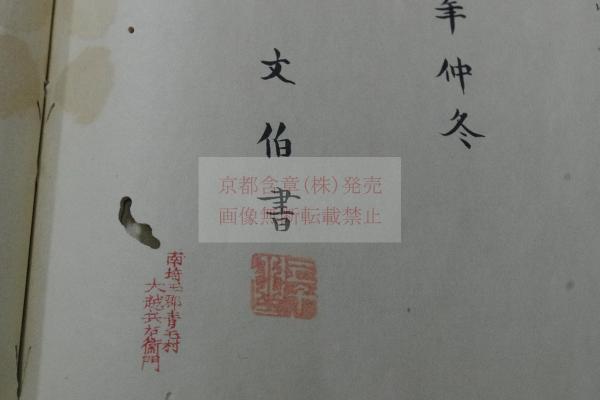 年仲冬
文伯書
京都含章(株)発売
画像無断転載禁止
南埼玉郡青毛村
大越兵右衛門